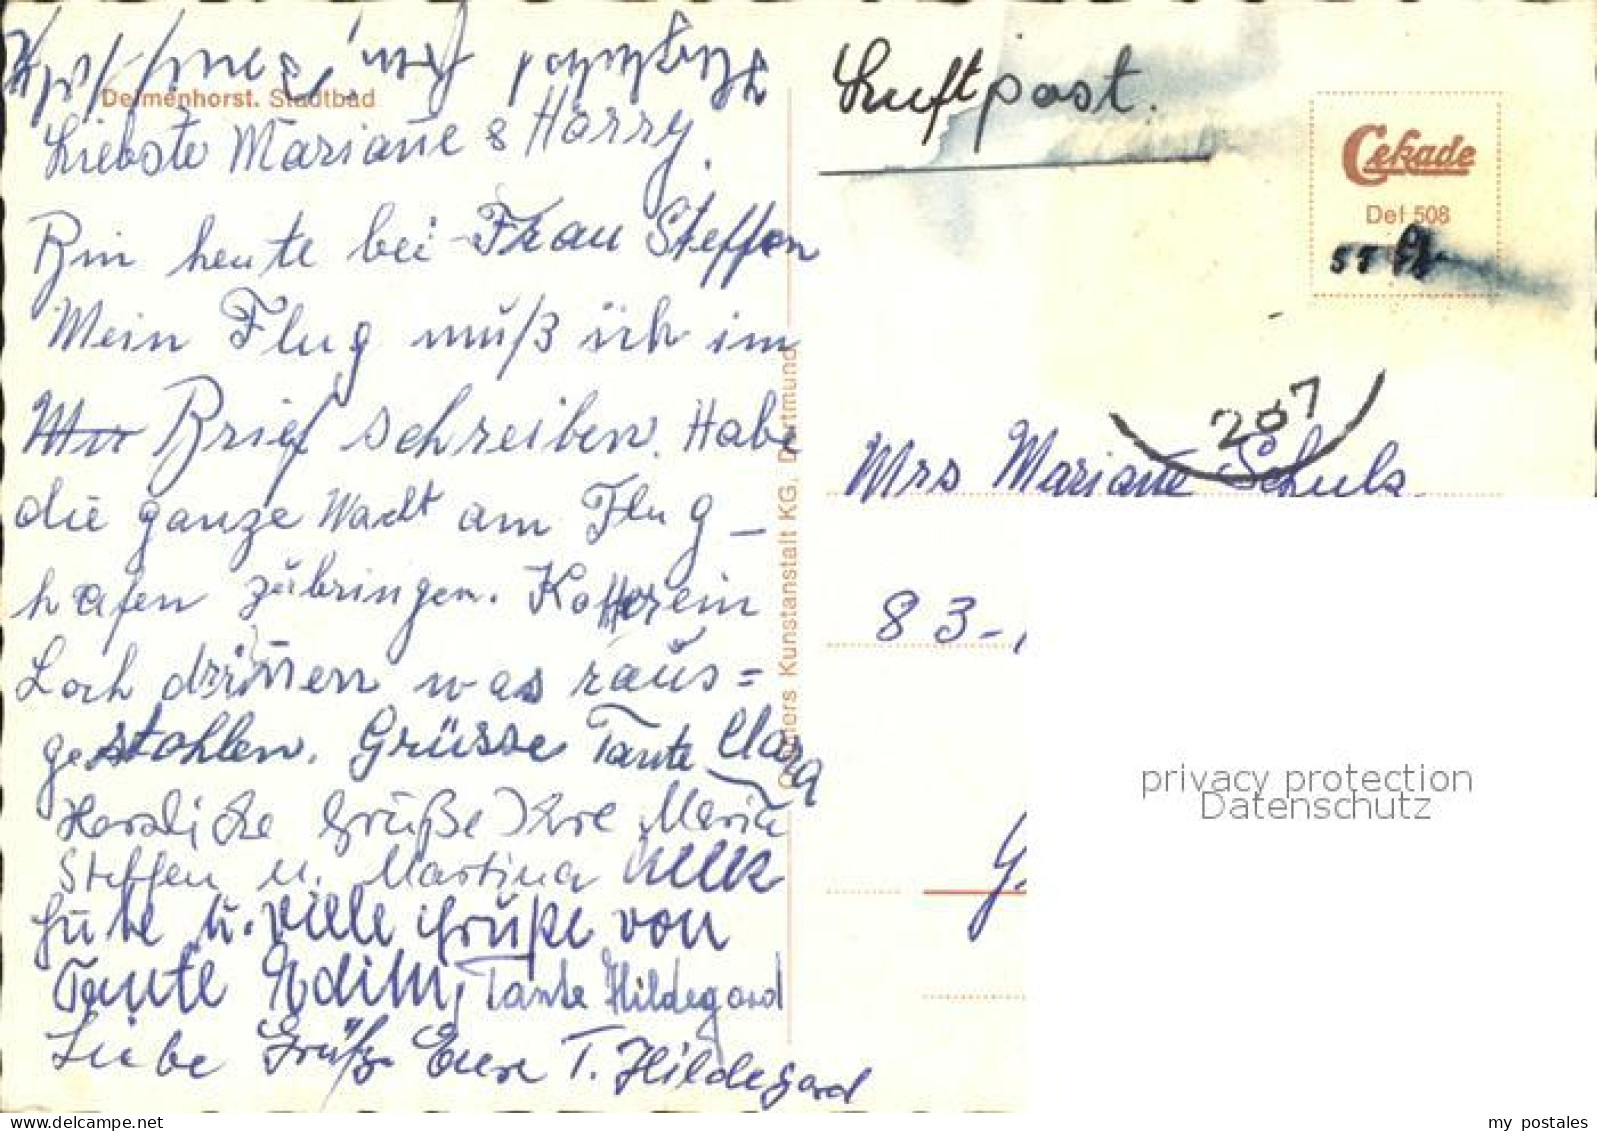 Delmenhorst. Stadtbad
Liebste Mariane & Harry.
Bin heute bei Frau Steffen
Mein Flug muß ich im
Brief schreiben. Habe
die ganze Nacht am Flug-
hafen zubringen. Koffer ein
Loch drinnen was raus=
gestohlen. Grüsse Tante Clara
Herzliche Grüße Ihre Maria
Steffen u. Martina
Gute u. viele Grüße von
Tante Tante Hildegard
Liebe Grüße Eure T. Hildegard
Kunstanstalt KG, Dortmund
Luftpost.
Cekade
Del 508
55 Pf
207
Mrs Mariane Schulz
83-
privacy protection
Datenschutz
my postales